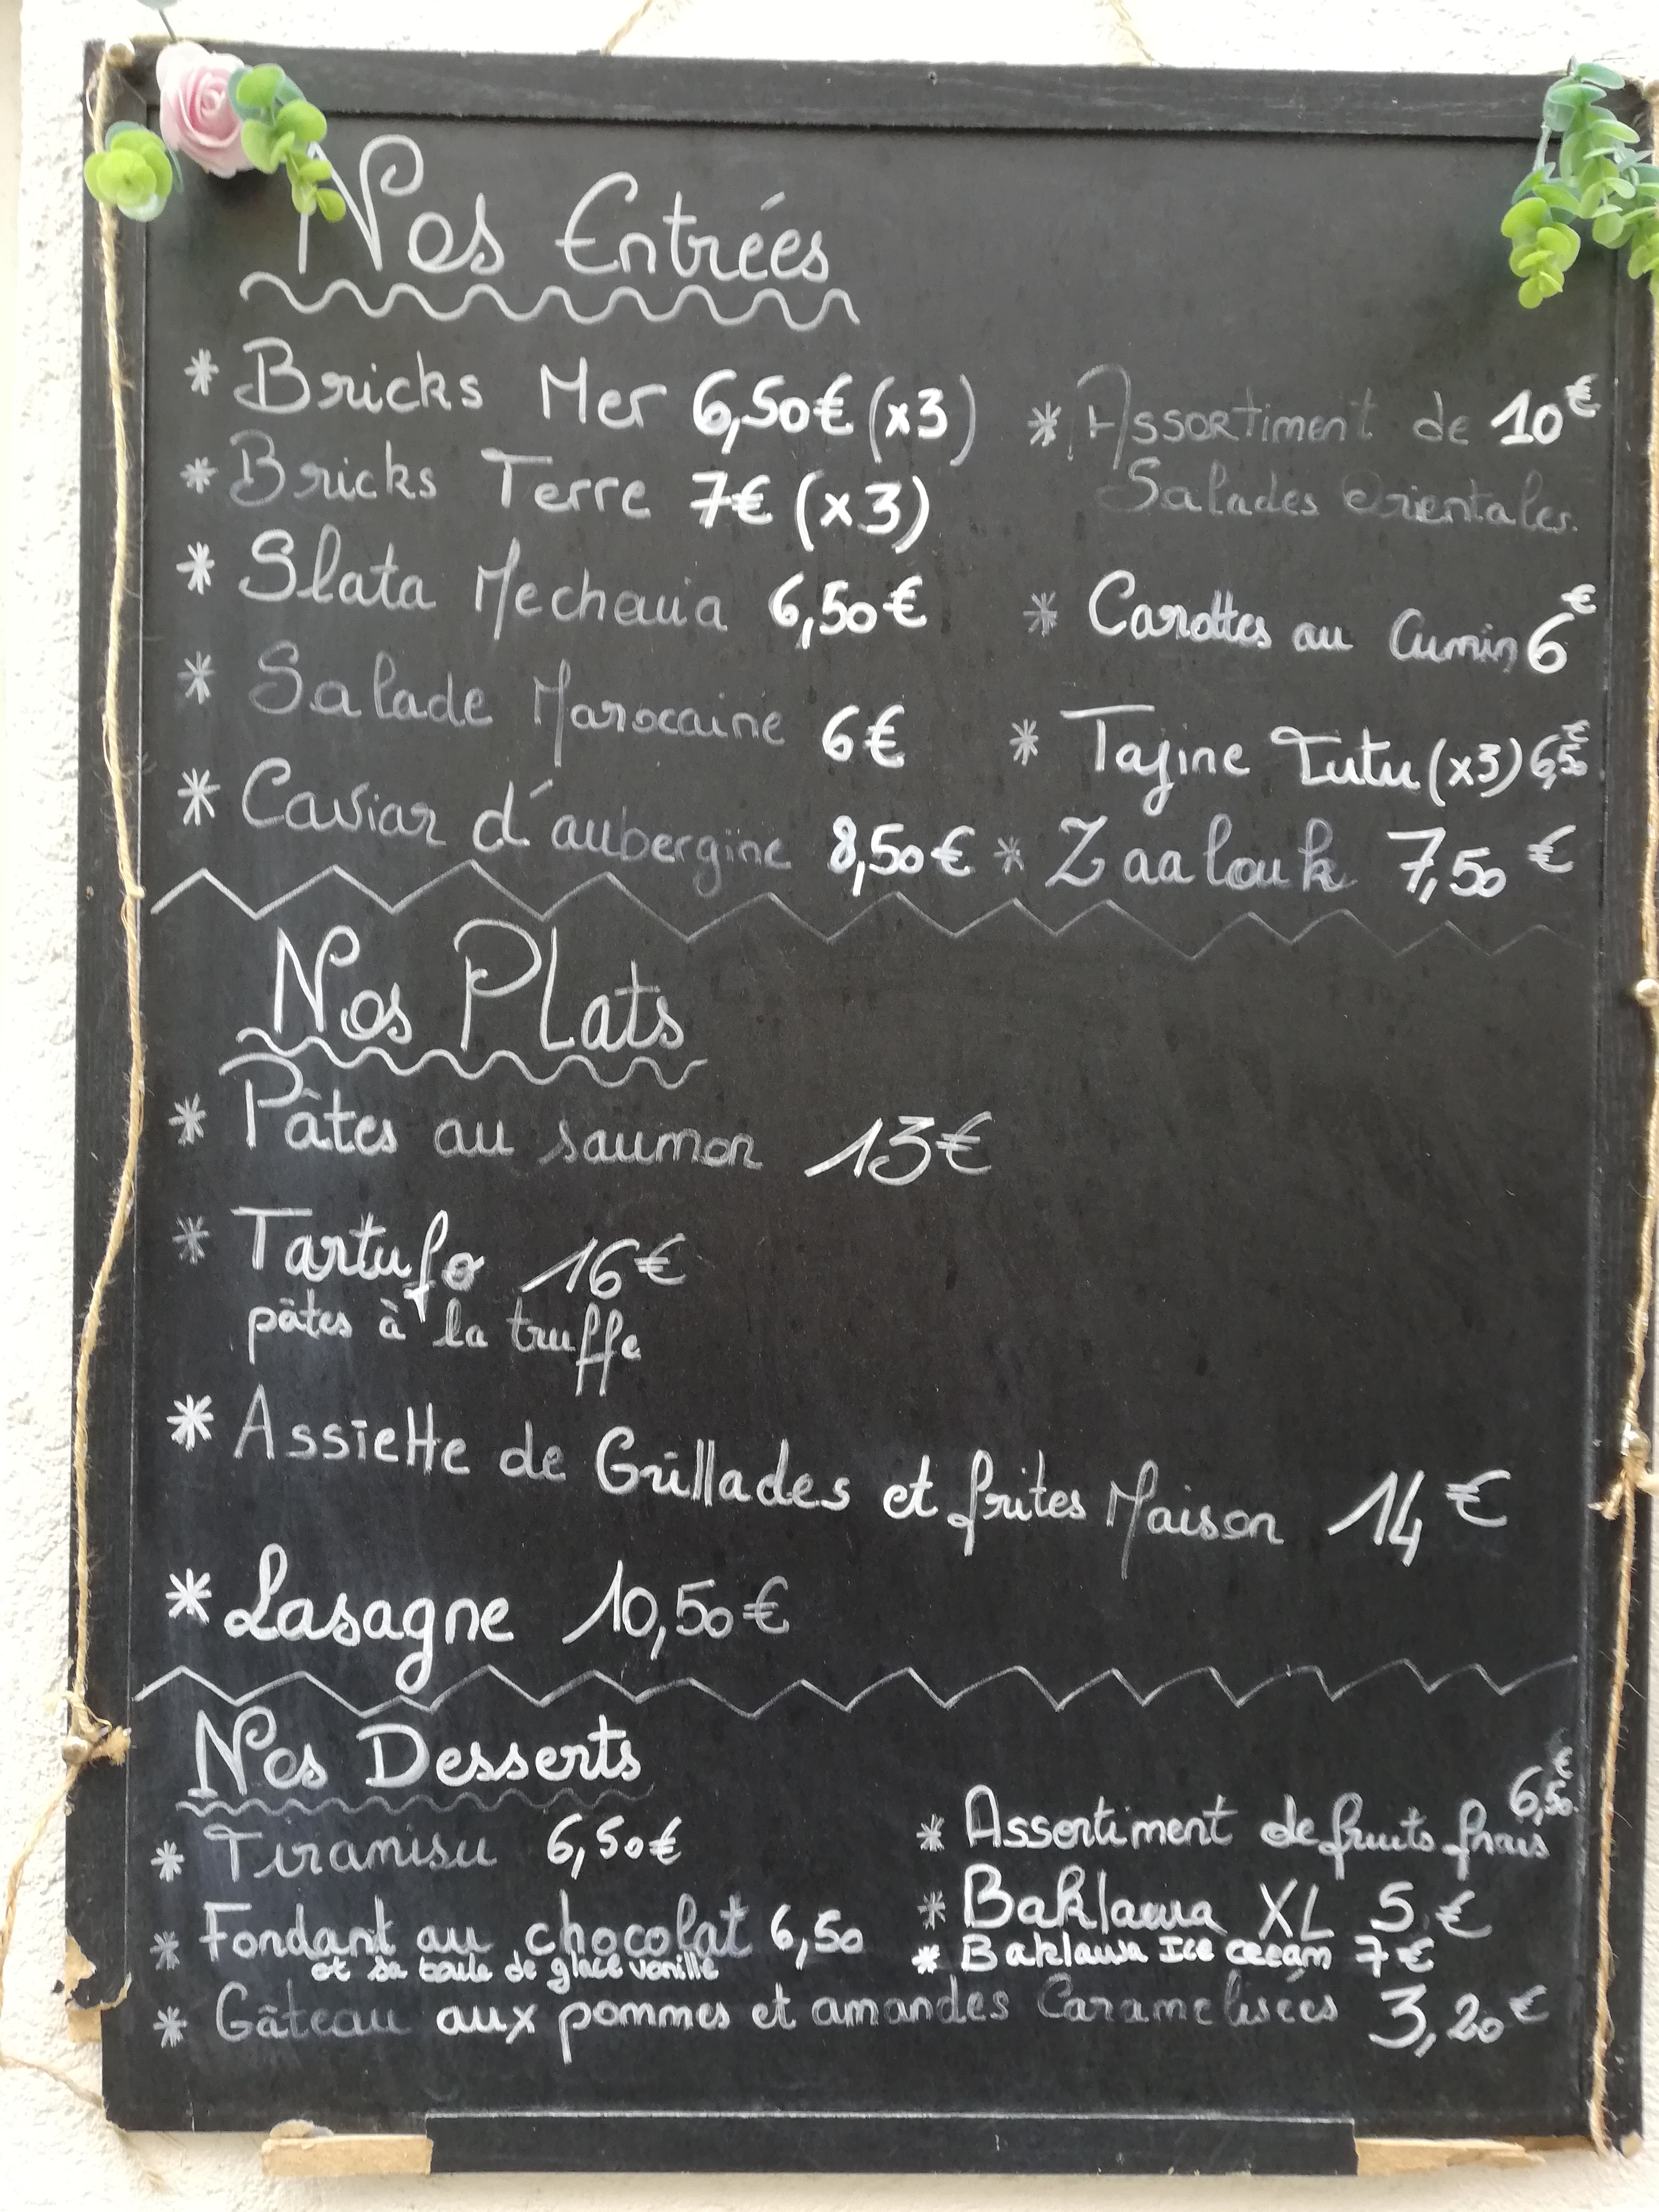 Nos Entrées
* Bricks Mer 6,50€ (x3)
* Bricks Terre 7€ (x3)
* Slata Mechouia 6,50€
* Salade Marocaine 6€
* Caviar d'aubergine 8,50€
* Assortiment de 10€
Salades Orientales.
* Carottes au Cumin 6€
* Tajine Tutu (x3) 6,50€
* Zaalouk 7,50€
Nos Plats
* Pâtes au saumon 13€
* Tartufo 16€
pâtes à la truffe
* Assiette de Grillades et frites Maison 14€
* Lasagne 10,50€
Nos Desserts
* Tiramisu 6,50€
* Fondant au chocolat 6,50
et sa boule de glace vanille
* Assortiment de fruits frais 6,50€
* Baklawa XL 5€
* Baklawa Ice cream 7€
* Gâteau aux pommes et amandes Caramelisées 3,20€